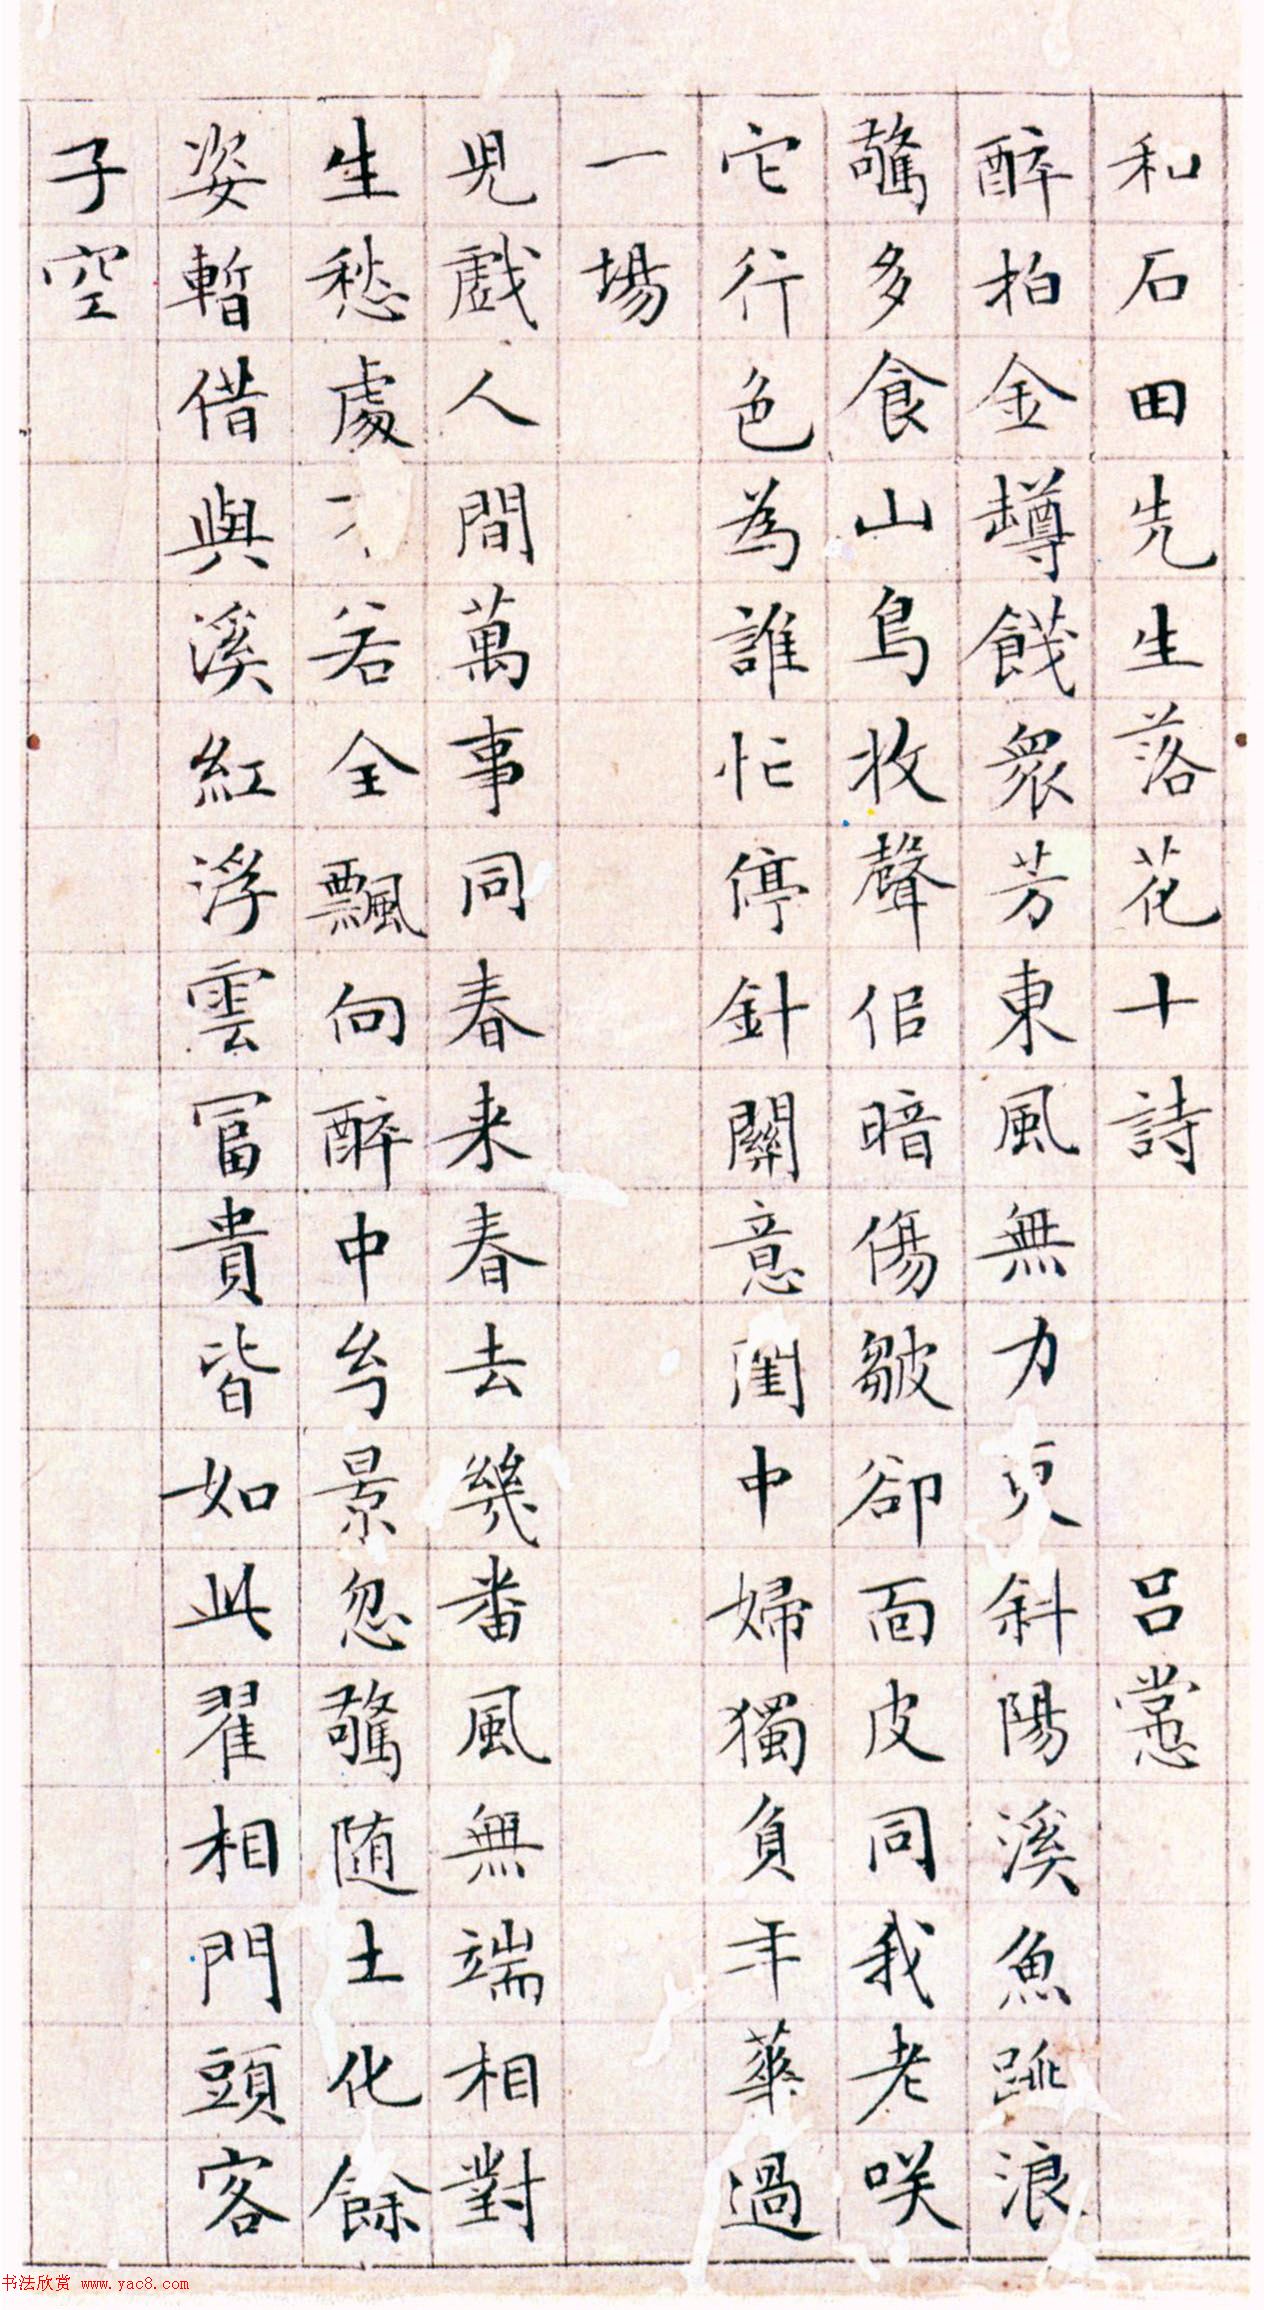 和石田先生落花十詩 呂㦂
醉拍金罇餞衆芳東風無力更斜陽溪魚跳浪
驚多食山鳥收聲侣暗傷皺卻面皮同我老咲
它行色為誰忙停針關意閨中婦獨負年華過
一場
児戲人間萬事同春来春去幾番風無端相對
生愁處 若全飄向醉中兮景忽驚随土化餘
姿暫借與溪紅浮雲冨貴皆如此翟相門頭客
子空
书法欣赏 www.yac8.com